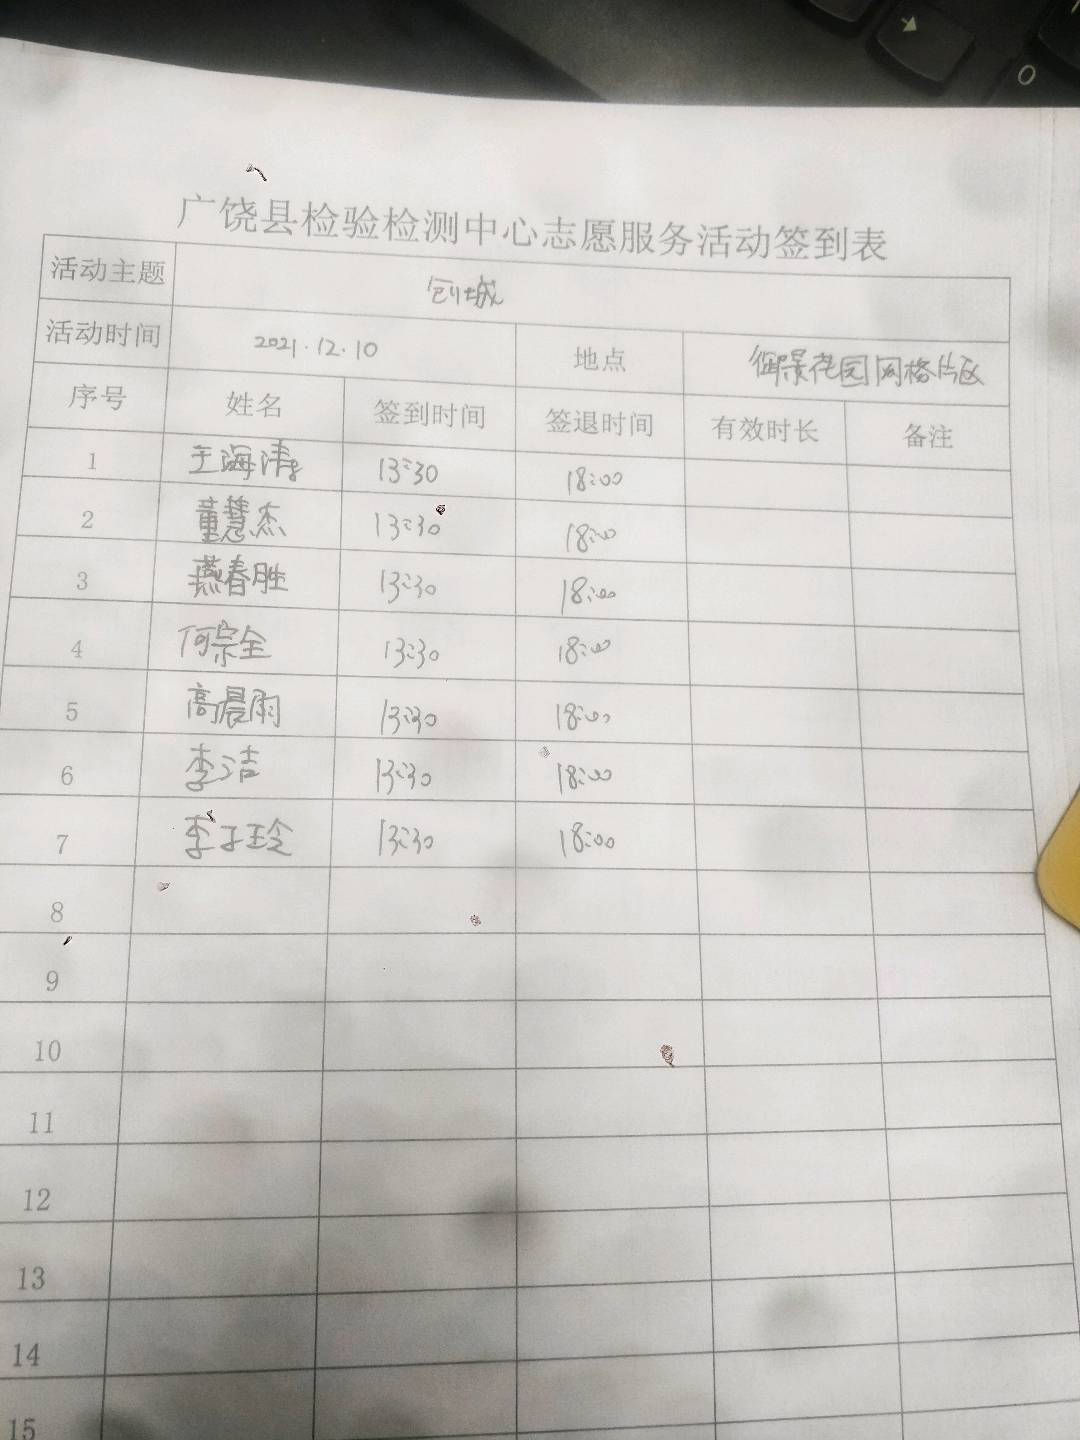 广饶县检验检测中心志愿服务活动签到表
活动主题 创城
活动时间 2021.12.10 地点 御景花园网格片区
序号 姓名 签到时间 签退时间 有效时长 备注
1 王海涛 13:30 18:00
2 董慧杰 13:30 18:00
3 燕春胜 13:30 18:00
4 何宗全 13:30 18:00
5 高晨雨 13:30 18:00
6 李洁 13:30 18:00
7 李子玲 13:30 18:00
8
9
10
11
12
13
14
15